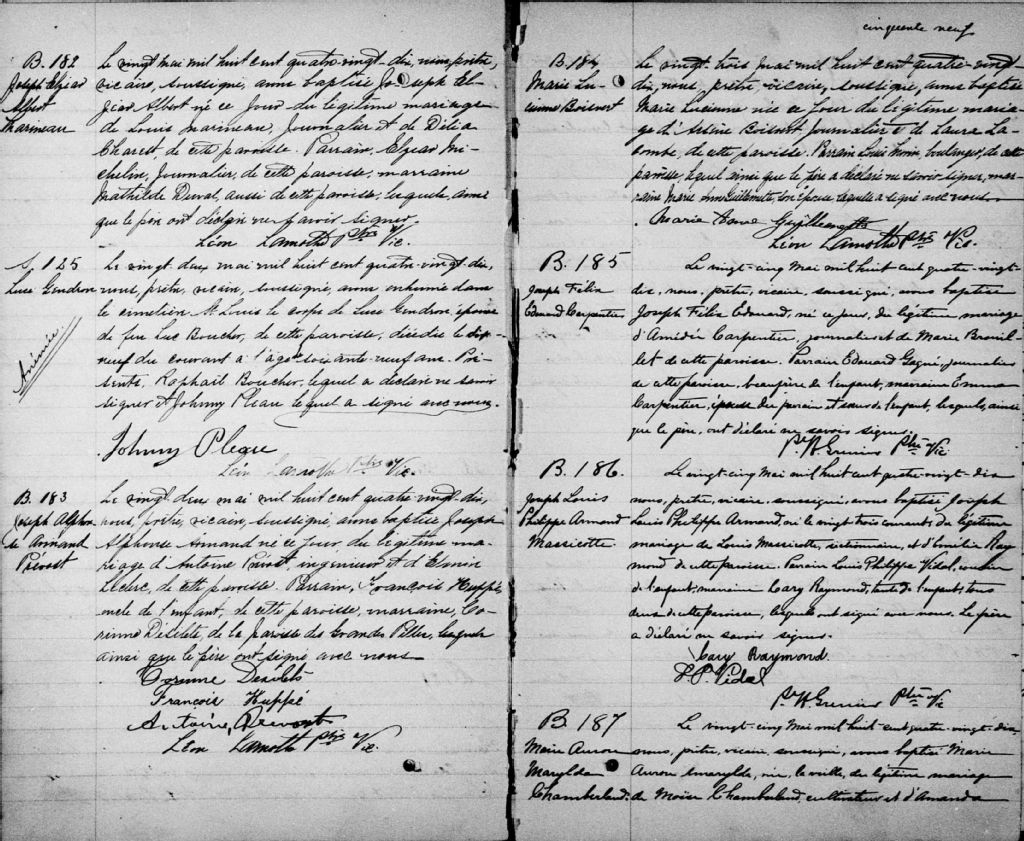 B. 182
Joseph Elzéar
Albert
Marineau
Le vingt mai mil huit cent quatre-vingt-dix, nous prêtre,
vicaire, soussigné, avons baptisé Joseph El-
zéar Albert né ce jour du légitime mariage
de Louis Marineau, journalier et de Délia
Charest, de cette paroisse. Parrain, Elzéar Mi-
chelin, journalier, de cette paroisse, marraine
Mathilde Duval, aussi de cette paroisse, lesquels ainsi
que le père ont déclaré ne savoir signer.
Léon Lamothe Ptre Vic.
S. 125
Luce Gendron
Anémie
Le vingt-deux mai mil huit cent quatre-vingt-dix,
nous, prêtre, vicaire, soussigné, avons inhumé dans
le cimetière St Louis le corps de Luce Gendron, épouse
de feu Luc Boucher, de cette paroisse, décédée le dix-
neuf du courant à l'âge soixante-neuf ans. Pré-
sents, Raphaël Boucher, lequel a déclaré ne savoir
signer et Johnny Pleau lequel a signé avec nous.
Johnny Pleau
Léon Lamothe Ptre Vic.
B. 183
Joseph Alphon
se Armand
Prévost
Le vingt-deux mai mil huit cent quatre-vingt-dix,
nous, prêtre, vicaire, soussigné, avons baptisé Joseph
Alphonse Armand né ce jour du légitime ma-
riage d'Antoine Prévost, ingénieur et d'
Leclerc, de cette paroisse. Parrain, François Huppé
oncle de l'enfant, de cette paroisse, marraine, Co-
rinne Désilets, de la paroisse des Grandes Piles, lesquels
ainsi que le père ont signé avec nous
Corinne Desilets
François Huppé
Antoine Prevost
Léon Lamothe Ptre Vic.
cinquante neuf
B. 184
Marie Lu-
cienne Boisvert
Le vingt-trois mai mil huit cent quatre-vingt-
dix, nous, prêtre vicaire, soussigné, avons baptisé
Marie Lucienne née ce jour du légitime maria-
ge d' Boisvert, journalier et de Laura La-
combe, de cette paroisse. Parrain Louis, boulanger, de cette
paroisse, lequel ainsi que le père a déclaré ne savoir signer, mar-
raine Marie Anne Guillemette, son épouse, laquelle a signé avec nous.
Marie Anne Guillemette
Léon Lamothe Ptre Vic.
B. 185
Joseph Félix
Edouard Carpentier
Le vingt-cinq mai mil huit cent quatre-vingt-
dix, nous, prêtre, vicaire, soussigné, avons baptisé
Joseph Félix Edouard, né ce jour, du légitime mariage
d'Amédée Carpentier, journalier et de Marie Brouil-
let de cette paroisse. Parrain Edouard Gagné, journalier
de cette paroisse, beau-frère de l'enfant, marraine Emma
Carpentier, épouse du parrain et sœur de l'enfant, lesquels, ainsi
que le père, ont déclaré ne savoir signer.
Grenier Ptre Vic
B. 186.
Joseph Louis
Philippe Armand
Massicotte.
Le vingt-cinq mai mil huit cent quatre-vingt-dix
nous, prêtre, vicaire, soussigné, avons baptisé Joseph
Louis Philippe Armand, né le vingt trois courant, du légitime
mariage de Louis Massicotte, et d'Emilie Ray
mond de cette paroisse. Parrain Louis Philippe Vidal, cousin
de l'enfant, marraine Cary Raymond, tante de l'enfant, tous
deux de cette paroisse, lesquels ont signé avec nous. Le père
a déclaré ne savoir signer.
Cary Raymond.
L. P. Vidal
Grenier Ptre Vic
B. 187
Marie Aurore
Marylda
Chamberland.
Le vingt-cinq mai mil huit cent quatre-vingt-dix
nous, prêtre, vicaire, soussigné, avons baptisé Marie
Aurore Emarylda, née la veille, du légitime mariage
de Moïse Chamberland, cultivateur et d'Amanda